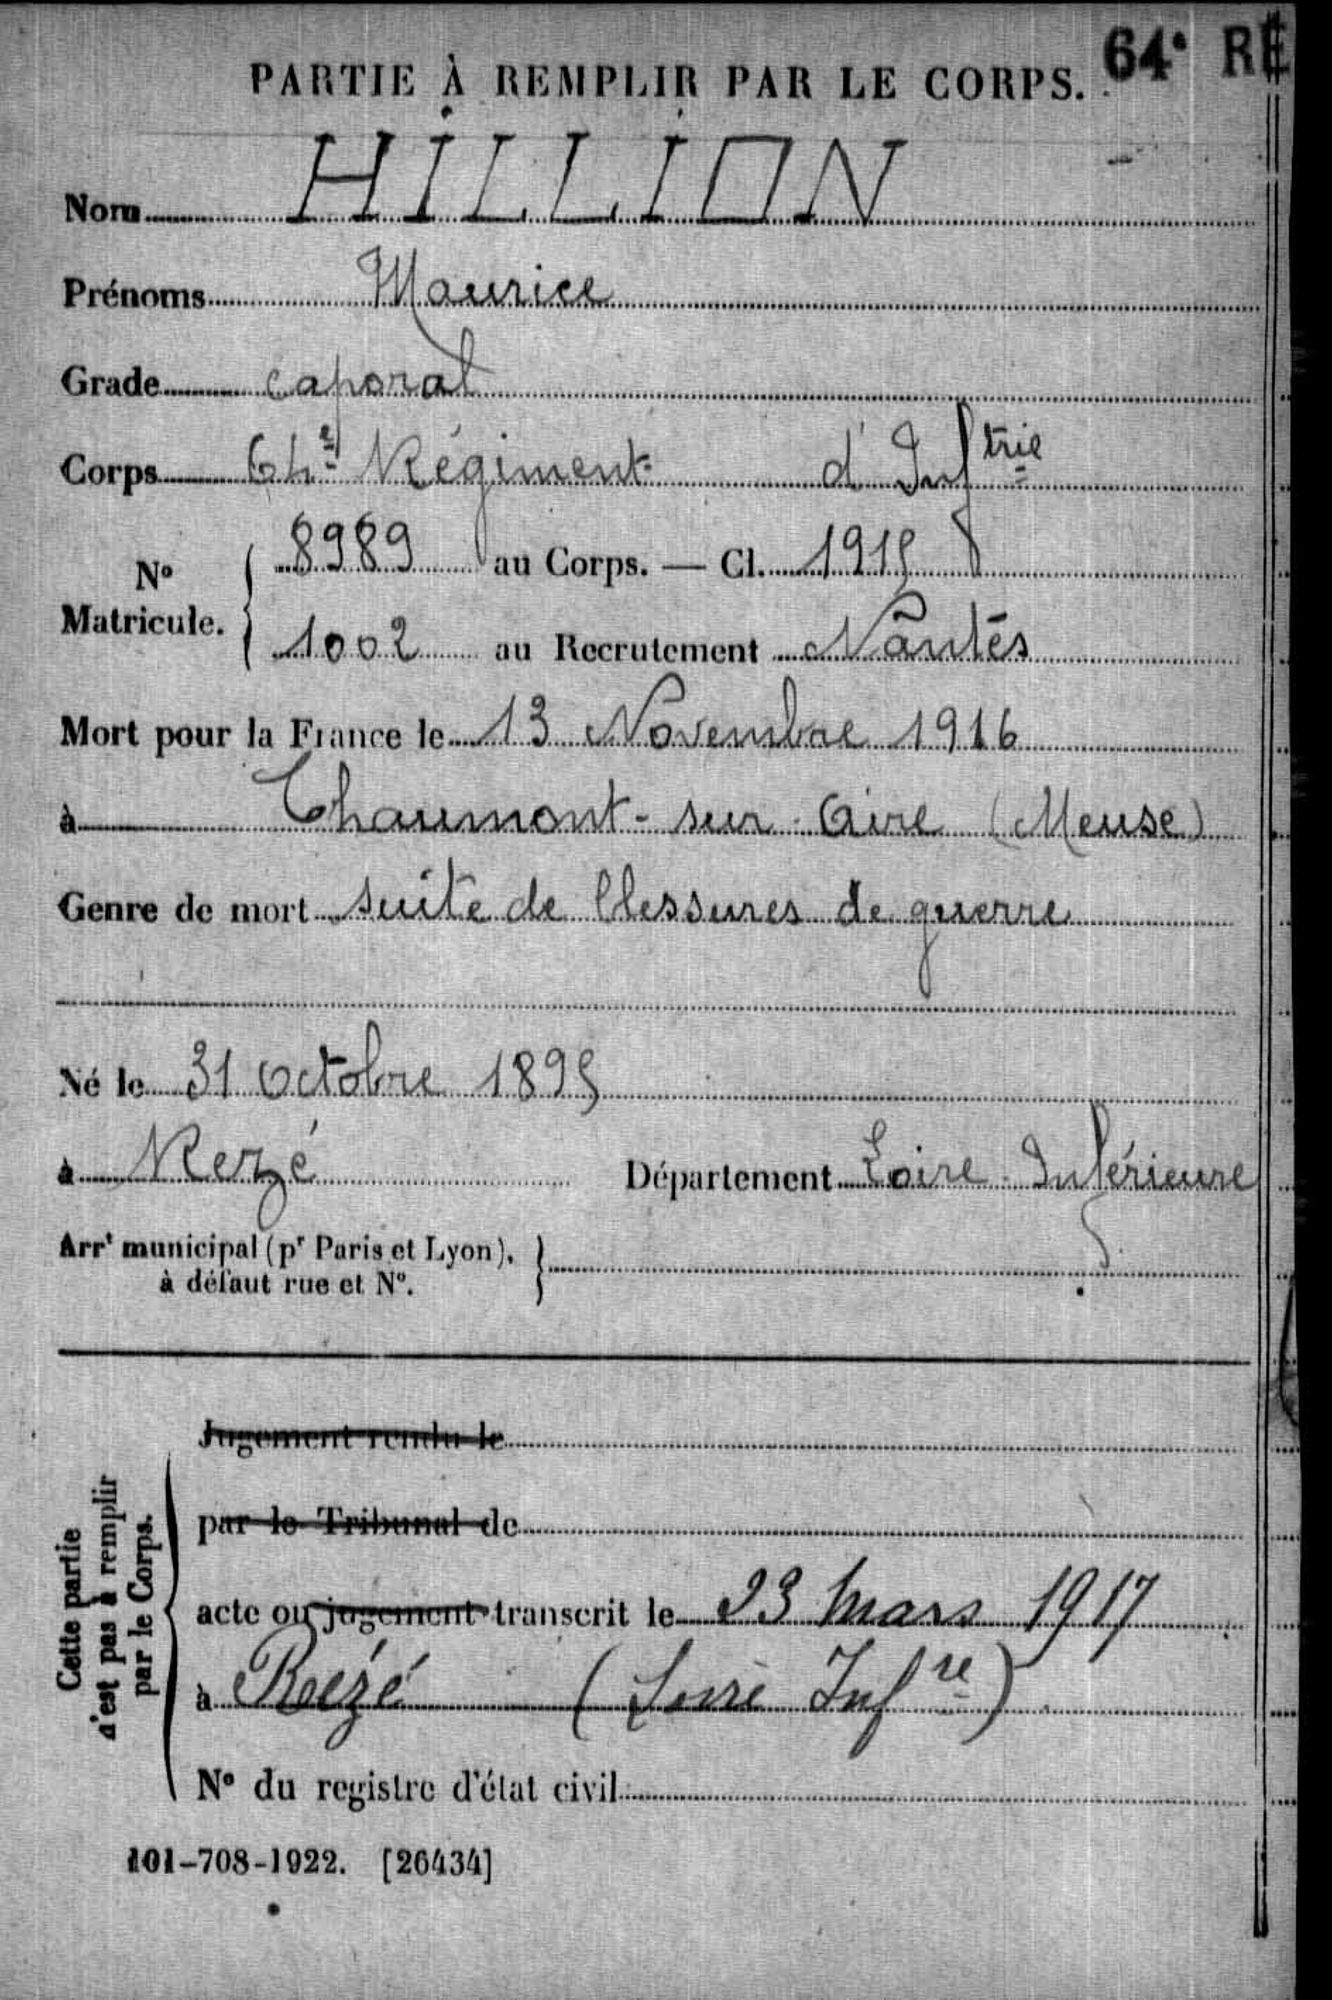 64e RE
PARTIE À REMPLIR PAR LE CORPS.
Nom HILLION
Prénoms Maurice
Grade caporal
Corps 64e Régiment d'Inftrie
No Matricule. 8989 au Corps. — Cl. 1915
1002 au Recrutement Nantes
Mort pour la France le 13 Novembre 1916
à Chaumont-sur-Aire (Meuse)
Genre de mort suite de blessures de guerre
Né le 31 Octobre 1895
à Rezé Département Loire Inférieure
Arrt municipal (pr Paris et Lyon),
à défaut rue et No.
Cette partie
n'est pas à remplir
par le Corps.
Jugement rendu le
par le Tribunal de
acte ou jugement transcrit le 23 Mars 1917
à Rezé (Loire Infre)
No du registre d'état civil
101-708-1922. [26434]